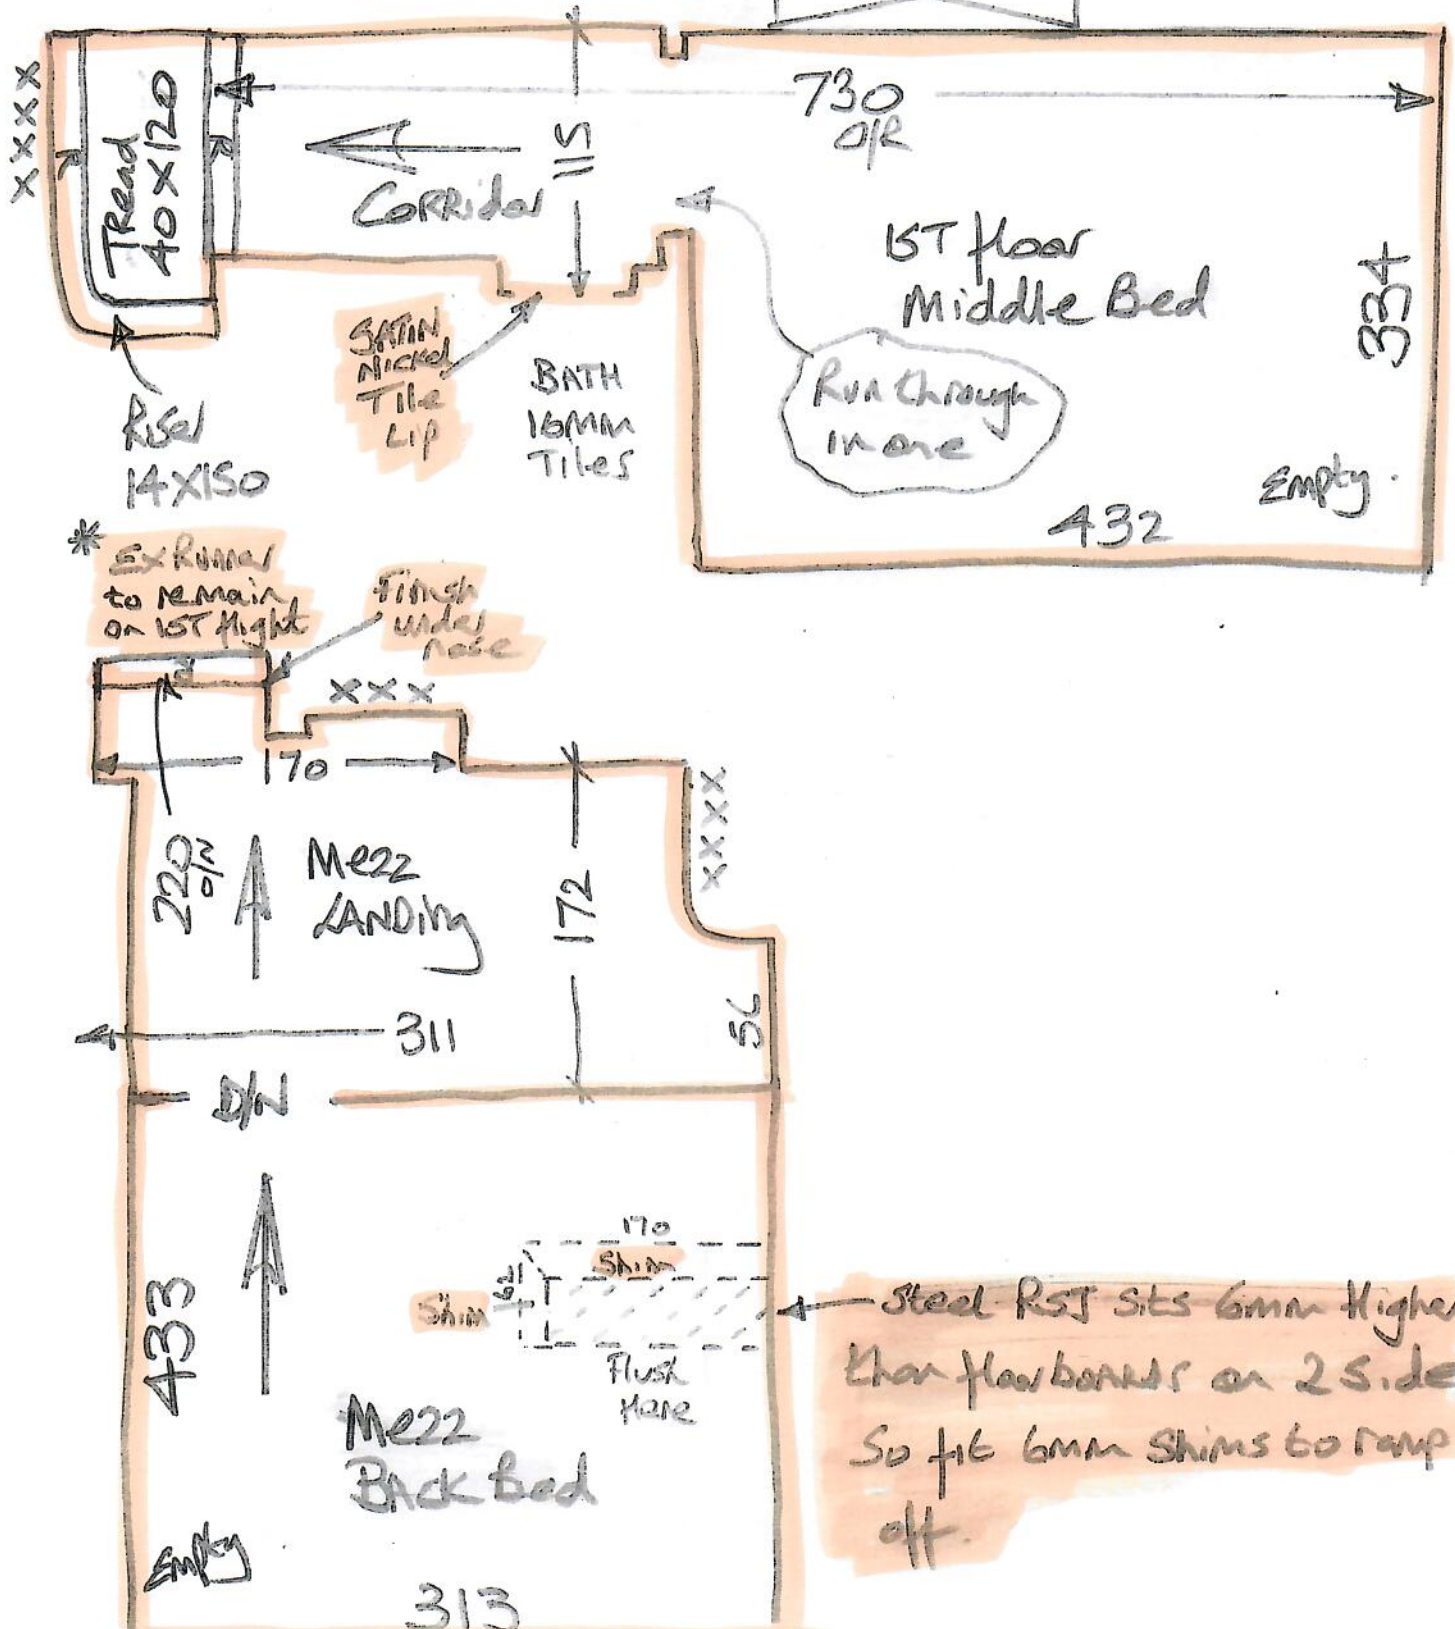 XXXX
Tread
40X120
730
O/R
115
Corridor
1ST floor
Middle Bed
334
SATIN
Nickel
Tile
Lip
BATH
16MM
Tiles
Run through
in one
Riser
14X150
Empty.
432
* Ex Runner
to remain
on 1ST flight
Finish
under
nose
XXX
170
XXXX
220
O/N
Mezz
LANDing
172
311
56
D/N
170
Shim
Shim
433
Flush
Here
Steel RSJ sits 6mm Higher
than floorboards on 2 side
So fit 6mm Shims to ramp
off.
Mezz
Back Bed
Empty
313